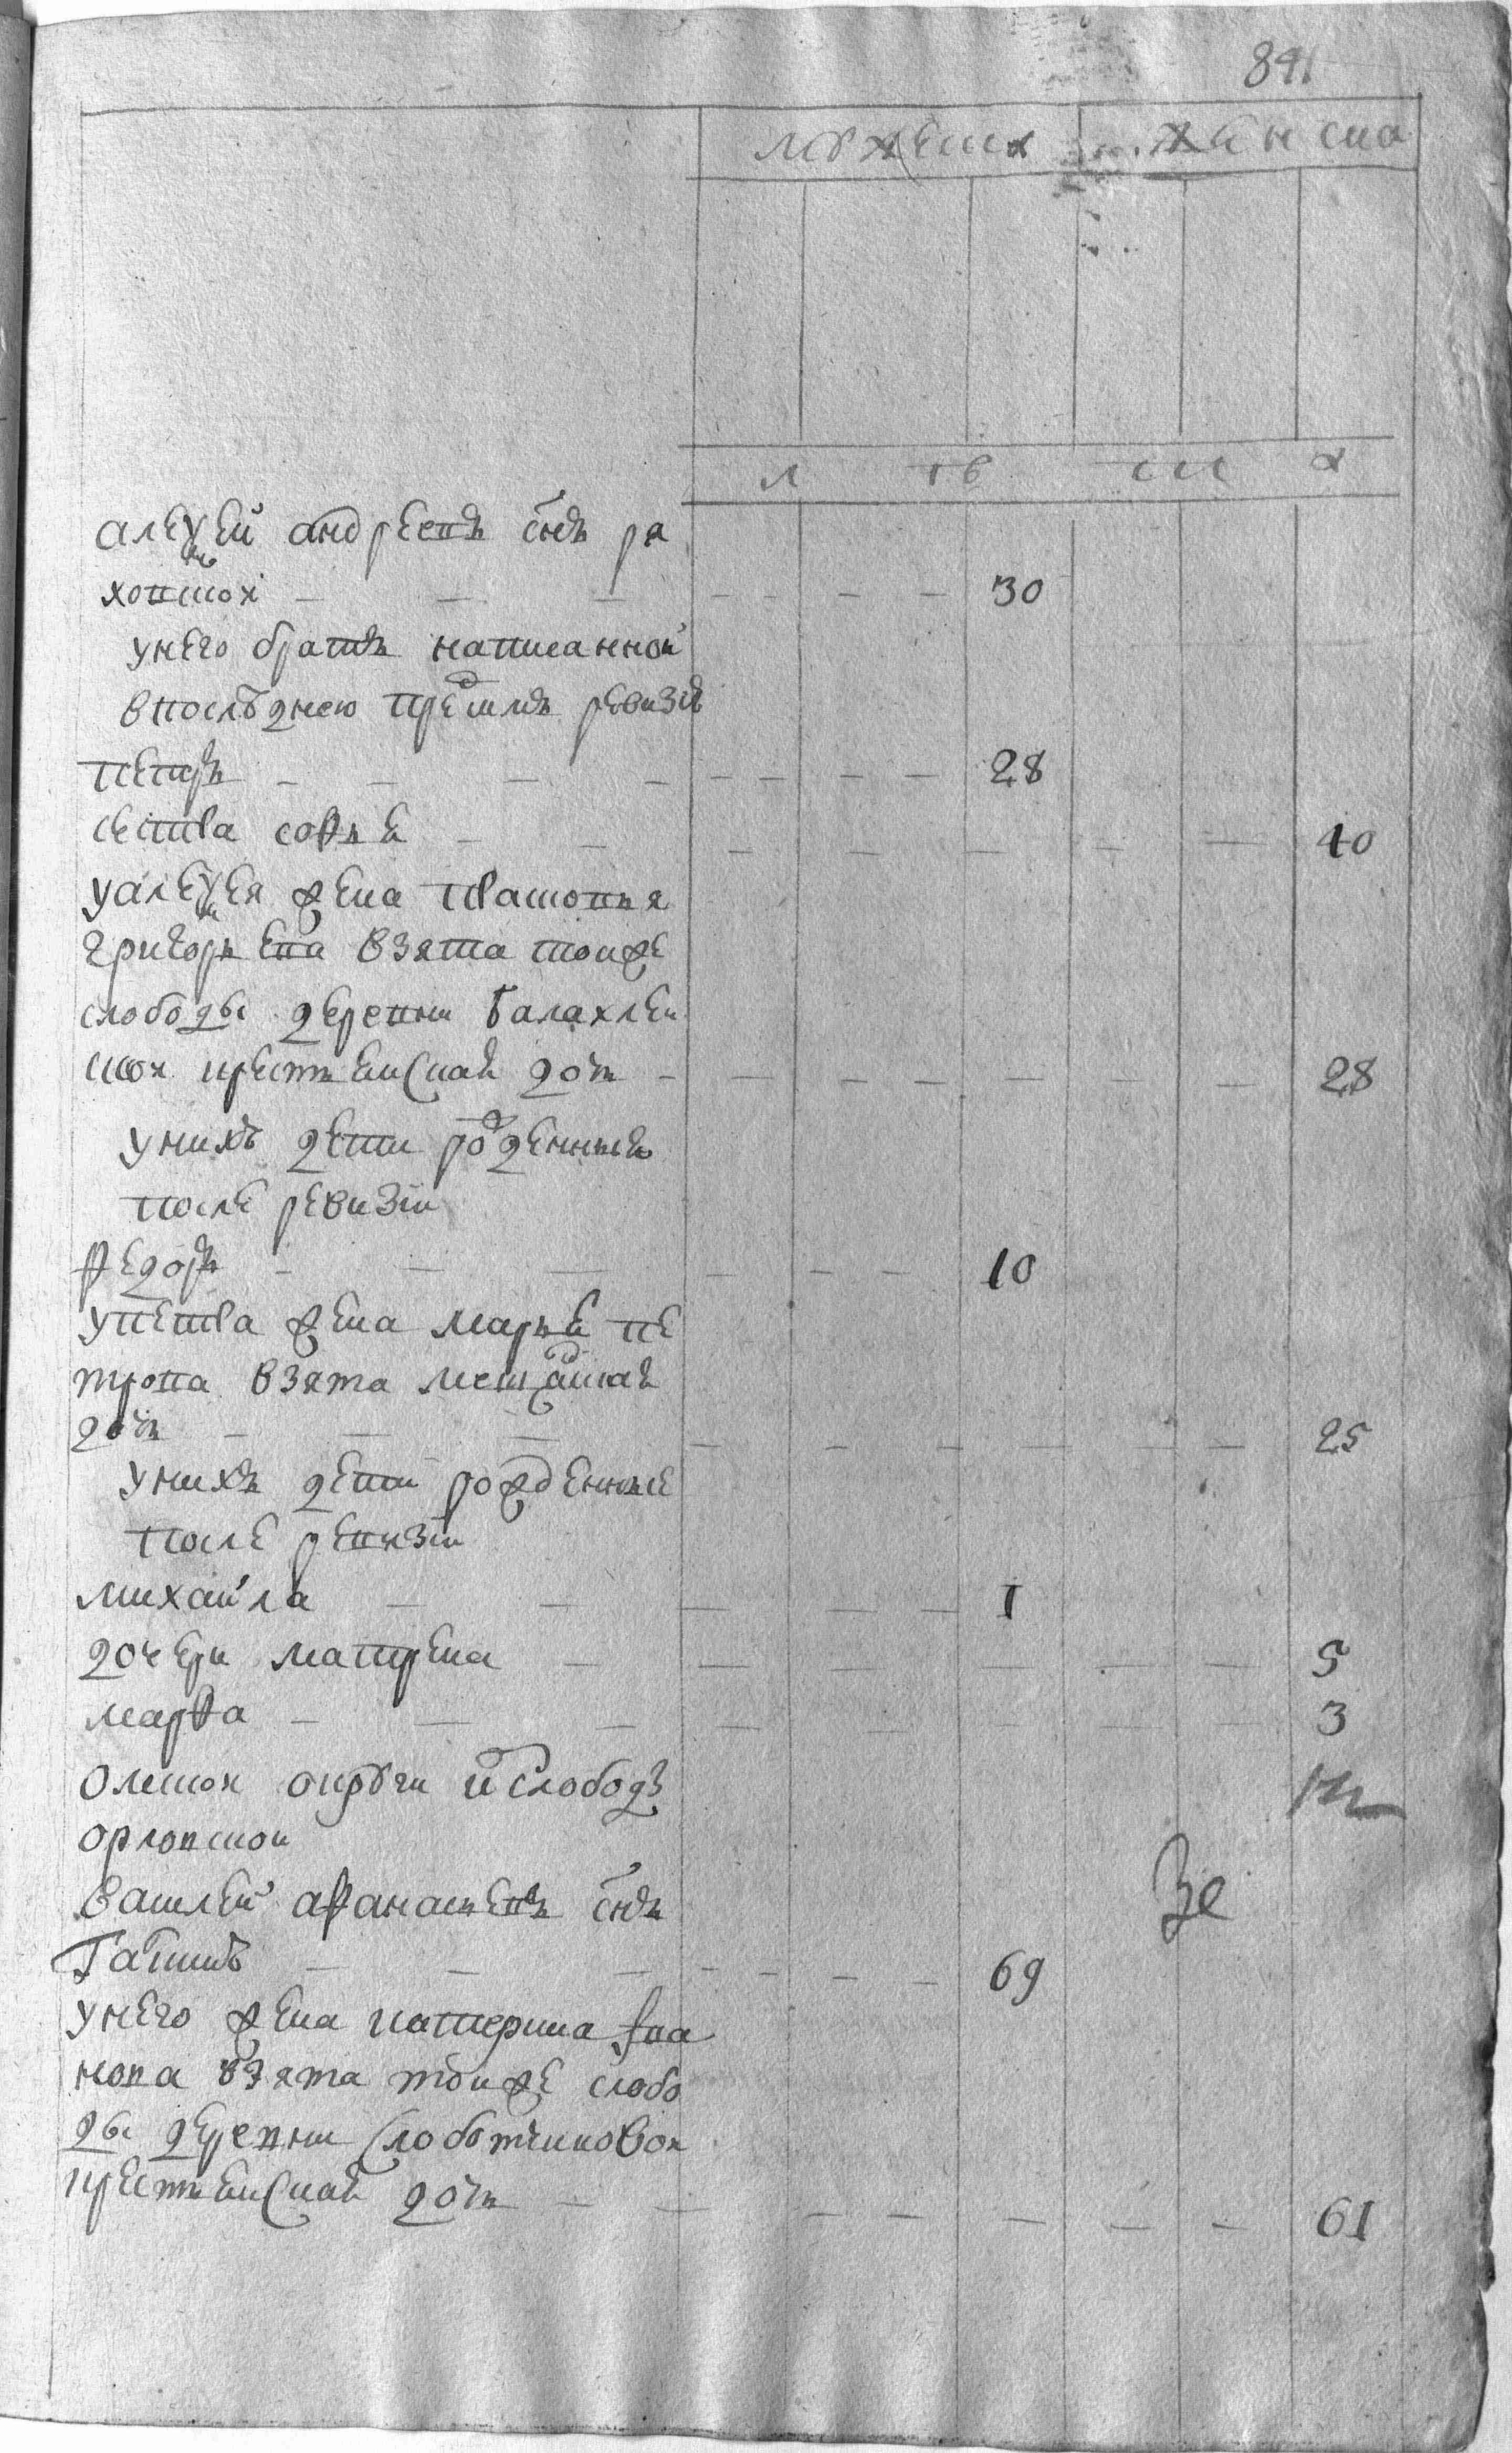 мужеска женска
л тв
алексей андреевъ снъ ра
ховской 30
у него братъ написанной
в последнею пред симъ ревизию
петръ 28
сестра софья 10
у алексея жена
григорьева взята тоиже
слободы деревни балахлей
ской крестьянская дочь 28
у нихъ дети рожденные
после ревизіи
федоръ 10
у петра жена марья пе
трова взята мещанская
дочь 25
у нихъ дети рожденные
после ревизіи
михайла 1
дочери матрена 5
марфа 3
омской округи и слободы
орловской
василей афанасьевъ снъ
69
у него жена катерина ива
нова взята тоиже слобо
ды деревни слободчиковой
крестьянская дочь 61